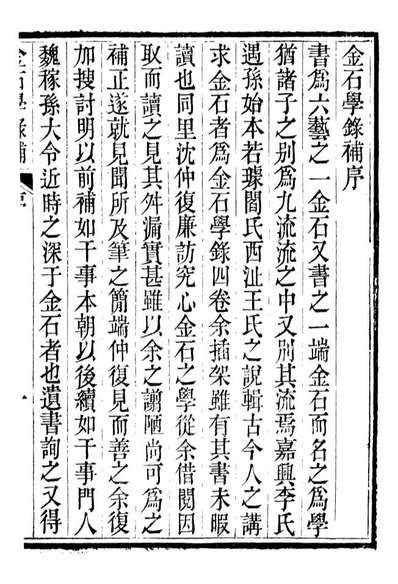 金石學錄補序
書爲六藝之一金石又書之一端金石而名之爲學
猶諸子之别爲九流流之中又别其流焉嘉興李氏
遇孫始本若璩閻氏西沚王氏之說輯古今人之講
求金石者爲金石學錄四卷余插架雖有其書未暇
讀也同里沈仲復廉訪究心金石之學從余借閱因
取而讀之見其舛漏實甚雖以余之谫陋尚可爲之
補正遂就見聞所及筆之簡端仲復見而善之余復
加搜討明以前補如干事本朝以後續如干事門人
魏稼孫大令近時之深于金石者也遺書詢之又得
金石學錄補
序
一